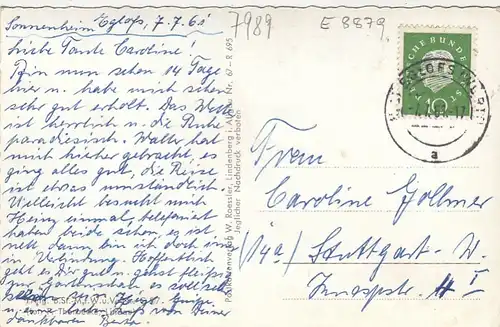 Sonnenheim Eglofs, 7.7.61
7989
E 8879
Liebe Tante Caroline!
Bin nun schon 14 Tage
hier u. habe mich schon
sehr gut erholt. Das Wetter
ist herrlich u. die Ruhe
paradiesisch. Walter hat
mich hierher gebracht, es
ging alles gut, die Reise
ist etwas umständlich.
Vielleicht besucht mich
Heinz einmal, telefoniert
haben beide schon, es ist
nett dann bin ich doch immer
in Verbindung. Hoffentlich
geht es Dir gut u. gehst fleißig
zum Gartenschau es soll sehr
schön sein. Herzl. Grüße
Deine
dankbare
Postkartenverlag W. Roessler, Lindenberg i. Allgäu Nr. 67 - R 695
Jeglicher Nachdruck verboten
DEUTSCHE BUNDESPOST
10
a
Frau
Caroline Zollmer
(14a) Stuttgart-W.